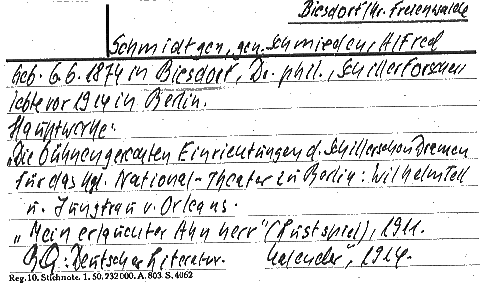 Biesdorf/Kr. Freienwalde
Schmidtgen, gen. Schmieden, Alfred
Geb. 6.6.1874 in Biesdorf, Dr. phil., Schillerforscher
lebte vor 1914 in Berlin.
Hauptwerke:
„Die bühnengerechten Einrichtungen d. Schillerschen Dramen
für das kgl. National-Theater zu Berlin: Wilhelm Tell
u. Jungfrau v. Orleans.
„Mein erlauchter Ahnherr" (Lustspiel), 1911.
Deutscher Literatur- Kalender", 1924.
Reg. 10. Stichnote. 1. 50. 732000. A. 803. S. 4062